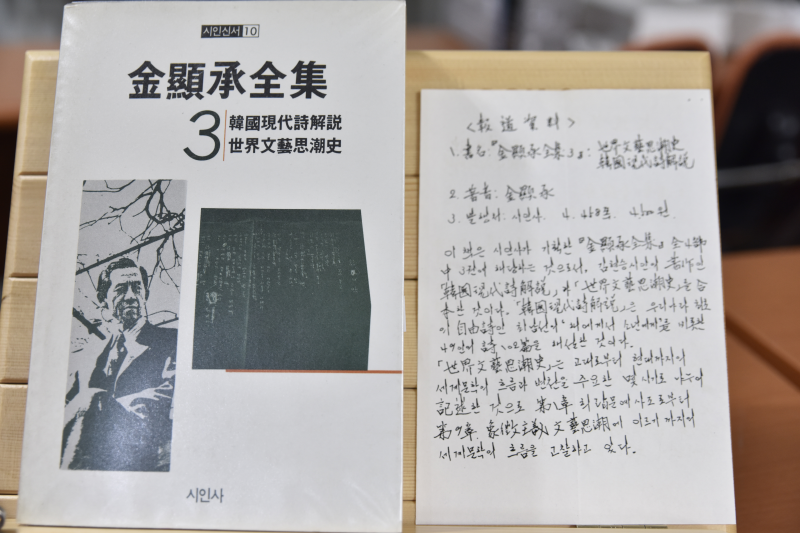 시인신서 10
金顯承全集
3
韓國現代詩解說
世界文藝思潮史
시인사
<報道資料>
1. 書名:『金顯承全集 3』: 世界文藝思潮史
韓國現代詩解說
2. 著者: 金顯承
3. 발행처: 시인사. 4. 458면.
이 책은 시인사가 기획한 『金顯承全集』 全4卷
中 3권에 해당하는 것으로서, 김현승시인의 著作인
「韓國現代詩解說」과 「世界文藝思潮史」을 合
본한 것이다. 「韓國現代詩解說」은 우리나라 최초
의 自由詩인 최남선의 「해에게서 소년에게」를 비롯한
49인의 詩 102篇을 해설한 것이다.
「世界文藝思潮史」는 고대로부터 현대까지의
세계문학의 흐름과 발전을 주요한 몇 시기로 나누어
記述한 것으로 第1章 희랍문예사조로부터
第9章 象徵主義文藝思潮에 이르기까지의
세계문학의 흐름을 고찰하고 있다.